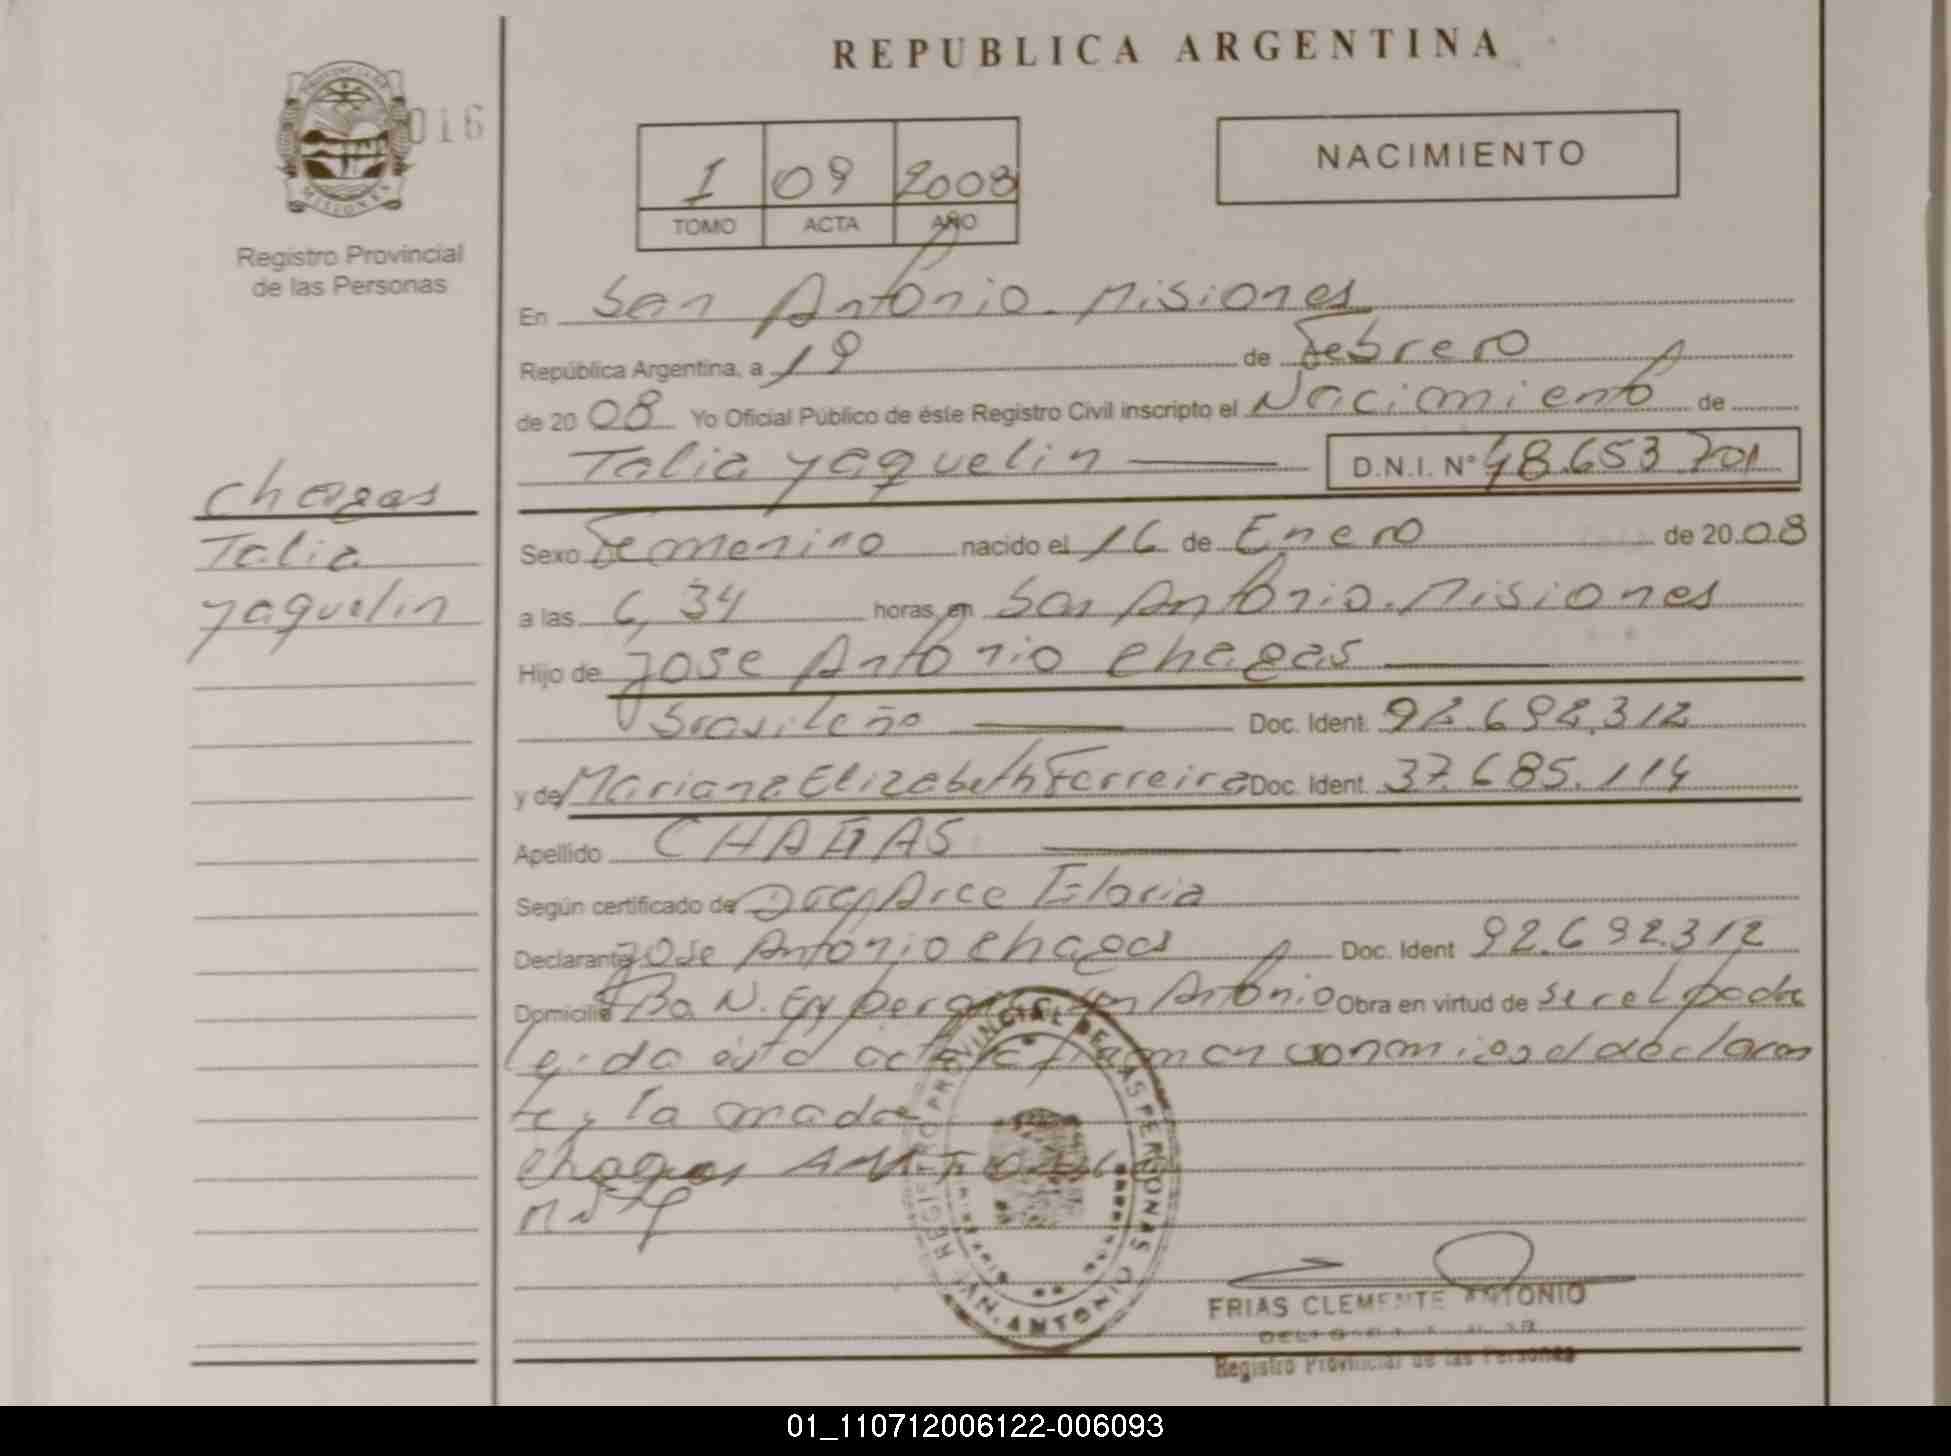 REPUBLICA ARGENTINA
PROVINCIA DE
MISIONES
016
Registro Provincial
de las Personas
I 09 2008
TOMO ACTA AÑO
NACIMIENTO
En San Antonio - Misiones
República Argentina, a 19 de Febrero
de 2008 Yo Oficial Público de éste Registro Civil inscripto el Nacimiento de
Talia Yaquelin D.N.I. Nº 48.653.701
Chagas
Talia
Yaquelin
Sexo Femenino nacido el 16 de Enero de 20.08
a las 6,34 horas en San Antonio. Misiones
Hijo de Jose Antonio Chagas
brasileño Doc. Ident. 92.692.312
y de Mariana Elizabeth Ferreira Doc. Ident. 37.685.114
Apellido CHAGAS
Según certificado de Arce Gloria
Declarante Jose Antonio Chagas Doc. Ident 92.692.312
Domicilio Bo N. San Antonio Obra en virtud de ser el padre
Leida esta acta la firman conmigo el declaran
te y la madre
Chagas
REGISTRO PROVINCIAL DE LAS PERSONAS
SAN ANTONIO
FRIAS CLEMENTE ANTONIO
Registro Provincial de las Personas
01_110712006122-006093